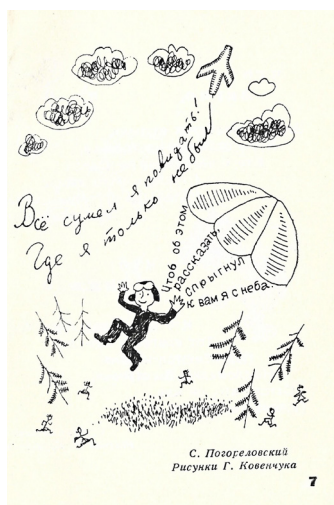 Всё сумел я повидать!
Где я только не был!
Чтоб об этом
рассказать,
спрыгнул
к вам я с неба.
С. Погореловский
Рисунки Г. Ковенчука
7